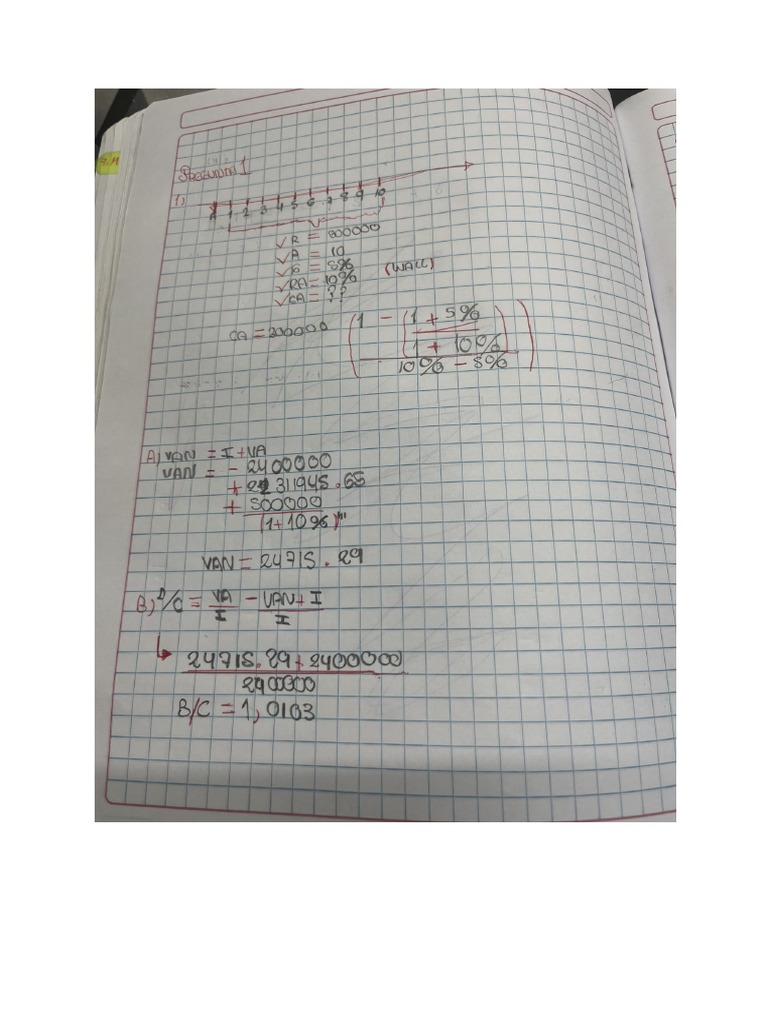 Pregunta 1
1)
A 1 2 3 4 5 6 7 8 9 10
R = 300000
A = 10
G = 5%
RA = 10% (WACC)
CA = ??
CA = 300000 (1 - (1 + 5% / 1 + 10%) / 10% - 5%)
A) VAN = I + VA
VAN = - 2400000
+ 2231194S.65
+ 500000
(1+10%)
VAN = 24715.29
B) B/C = VA/I - VAN + I/I
24715.29 + 2400000
2400000
B/C = 1,0103